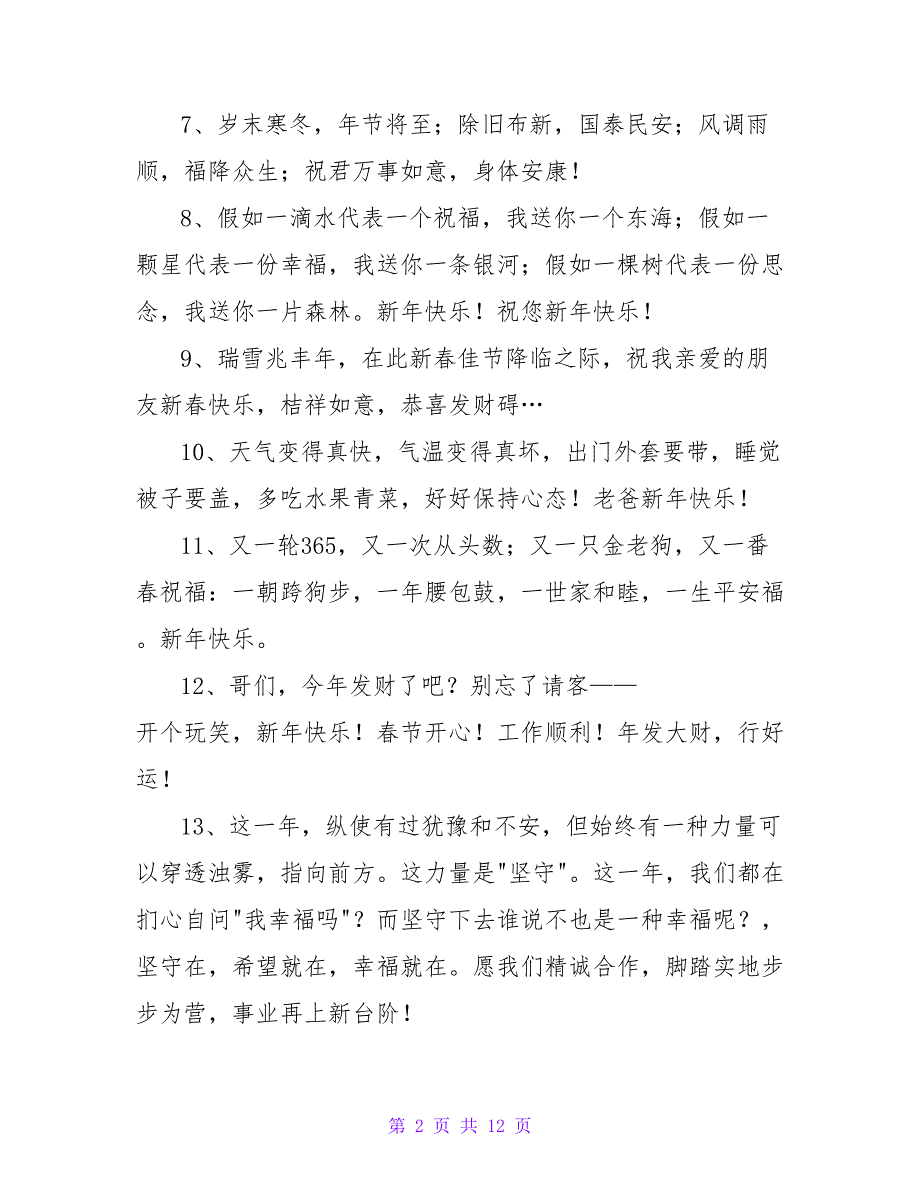 7、岁末寒冬，年节将至；除旧布新，国泰民安；风调雨
顺，福降众生；祝君万事如意，身体安康！
8、假如一滴水代表一个祝福，我送你一个东海；假如一
颗星代表一份幸福，我送你一条银河；假如一棵树代表一份思
念，我送你一片森林。新年快乐！祝您新年快乐！
9、瑞雪兆丰年，在此新春佳节降临之际，祝我亲爱的朋
友新春快乐，桔祥如意，恭喜发财碍…
10、天气变得真快，气温变得真坏，出门外套要带，睡觉
被子要盖，多吃水果青菜，好好保持心态！老爸新年快乐！
11、又一轮365，又一次从头数；又一只金老狗，又一番
春祝福：一朝跨狗步，一年腰包鼓，一世家和睦，一生平安福
。新年快乐。
12、哥们，今年发财了吧？别忘了请客——
开个玩笑，新年快乐！春节开心！工作顺利！年发大财，行好
运！
13、这一年，纵使有过犹豫和不安，但始终有一种力量可
以穿透浊雾，指向前方。这力量是"坚守"。这一年，我们都在
扪心自问"我幸福吗"？而坚守下去谁说不也是一种幸福呢？，
坚守在，希望就在，幸福就在。愿我们精诚合作，脚踏实地步
步为营，事业再上新台阶！
第 2 页 共 12 页